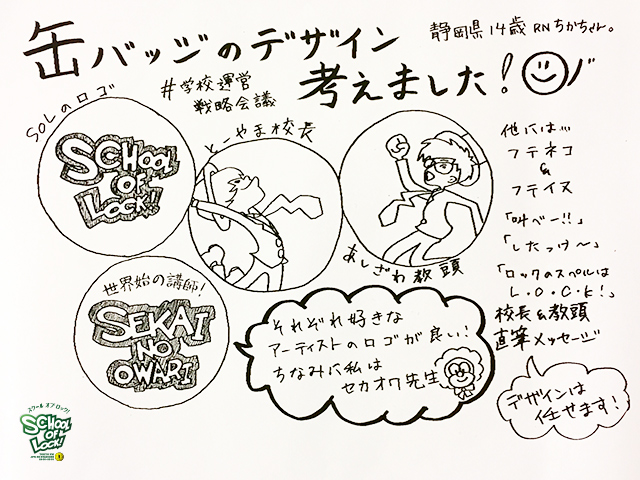 缶バッジのデザイン
考えました!
静岡県14歳 RN ちかちゃん。
#学校運営
戦略会議
SOLのロゴ
SCHOOL
OF
LOCK!
とーやま校長
あしざわ教頭
世界始の講師!
SEKAI
NO
OWARI
それぞれ好きな
アーティストのロゴが良い!
ちなみに私は
セカオワ先生
他には…
フテネコ
&
フテイヌ
「叫べー!!」
「したっけ〜」
「ロックのスペルは
L・O・C・K!」
校長&教頭
直筆メッセージ
デザインは
任せます!
スクール オブ ロック!
SCHOOL
OF
LOCK!